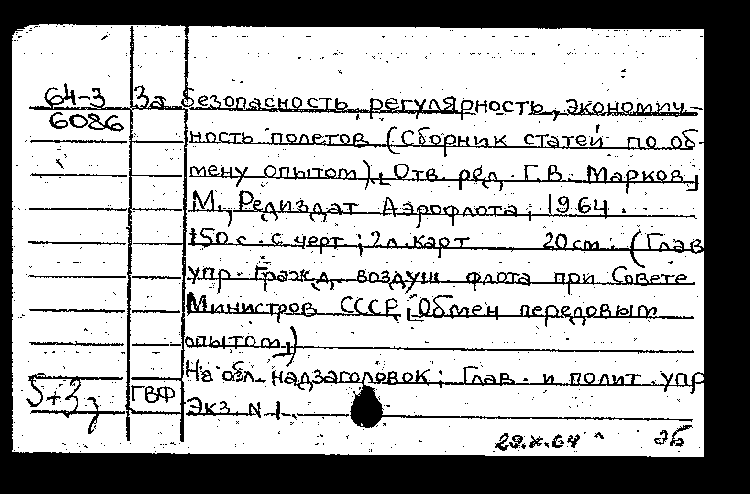 64-3 За безопасность, регулярность, экономич-
6086
ность полетов (Сборник статей по об-
мену опытом). Отв. ред. Г.В. Марков.
М., Редиздат Аэрофлота, 1964.
150 с. с черт; 2 л. карт 20 cm. (Глав
упр. гражд. воздуш. флота при Совете
Министров СССР. Обмен передовым
опытом.)
На обл. надзаголовок: Глав. и полит. упр
ГВФ
Экз. N 1.
29.X.64